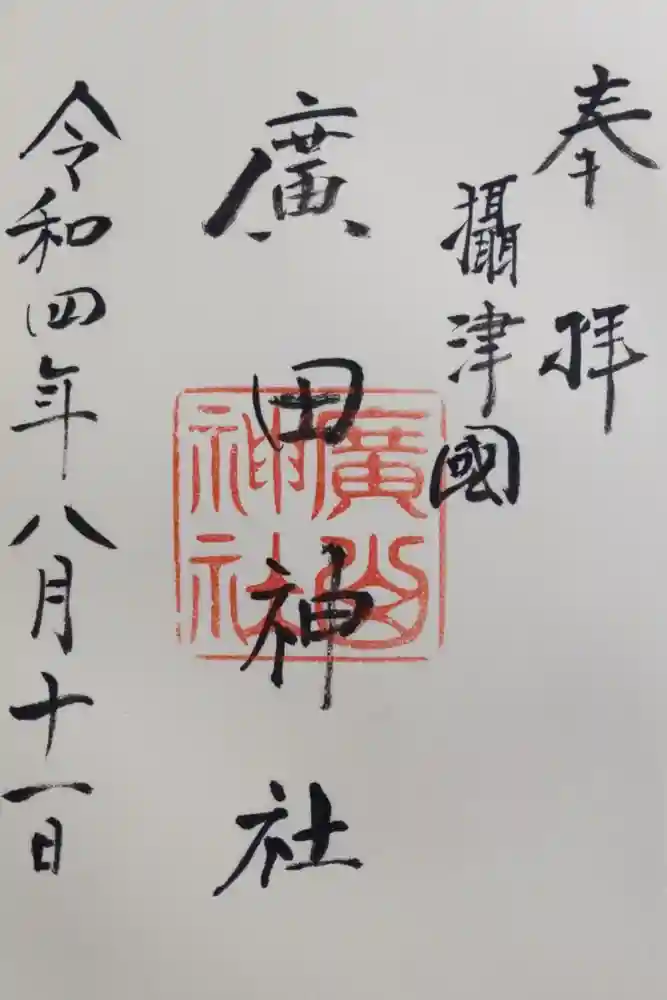 奉拝
攝津國
廣田神社
令和四年八月十一日
廣田
神社